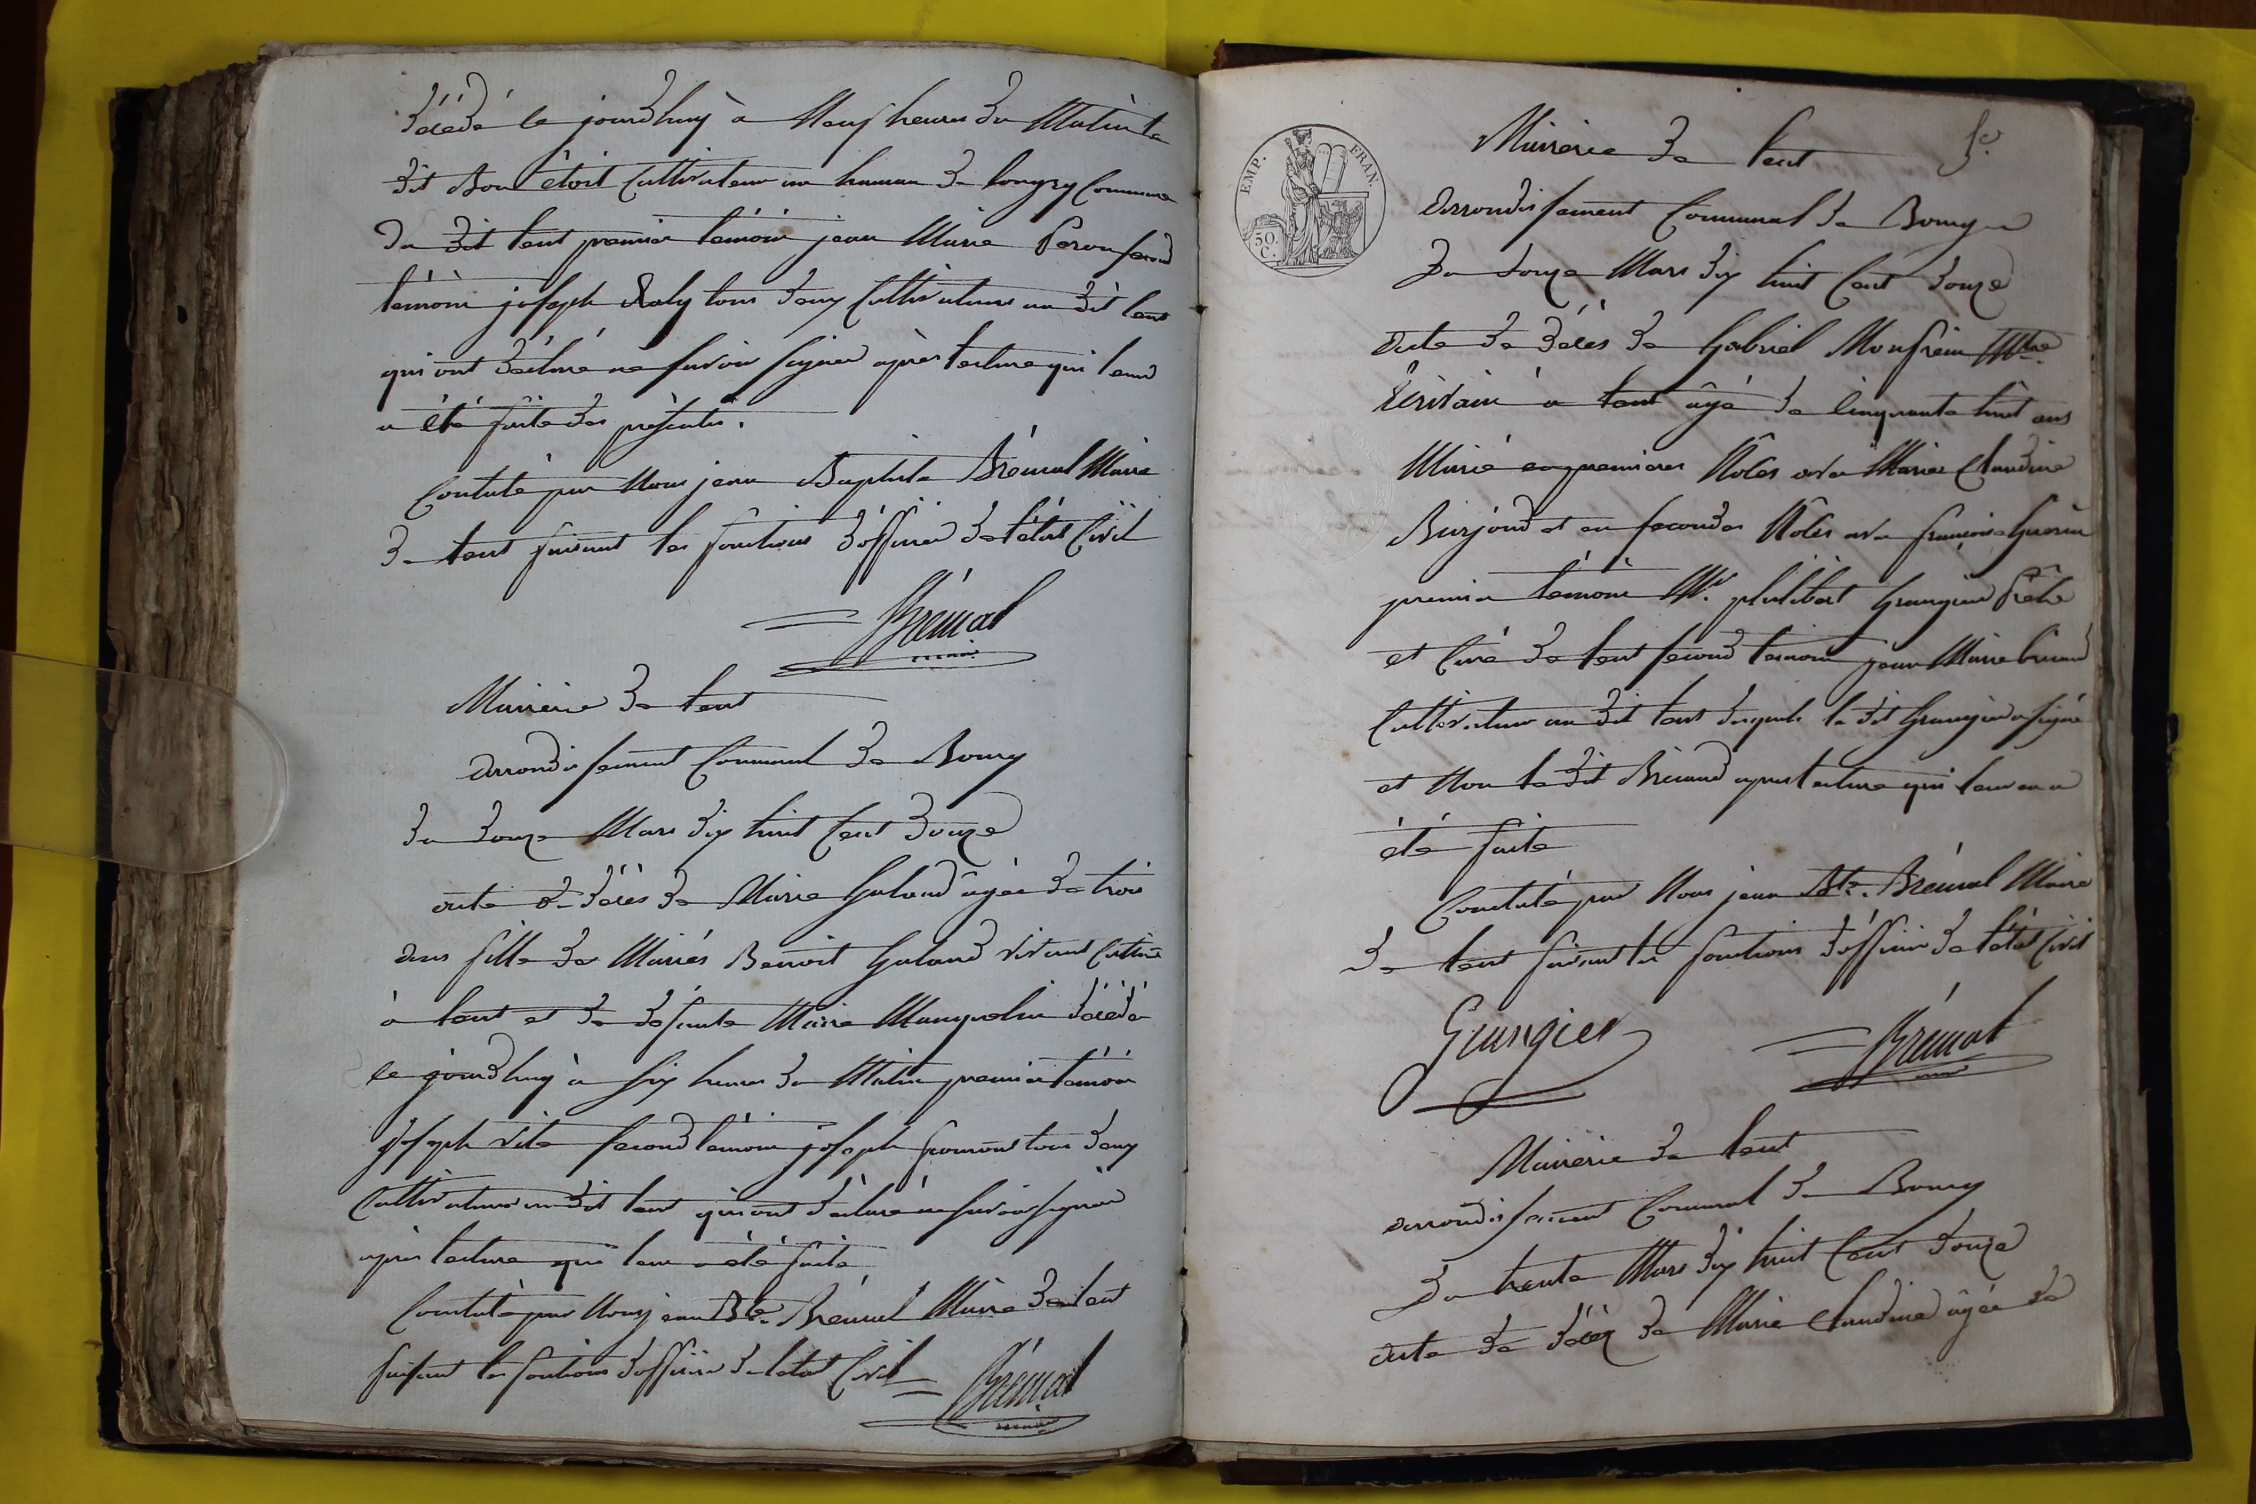 décédé le jourdhuy à Neuf heures du Matin le
dit Bon étoit Cultivateur au hameau de longry Commune
du dit tent premier témoin jean Marie second
témoin joseph tous deux Cultivateurs au dit tent
qui ont déclaré ne savoir signer après lecture qui leur
a été faite des présentes.
Constaté par Nous jean Baptiste Bréüval Maire
de tent faisant les fonctions d'officier de l'état Civil
Bréüval
Mairerie de tent
arrondissement Communal de Bourg
du douze Mars dix huit Cent douze
acte de décès de Marie Galand âgée de trois
ans fille de Mariés Benoit Galand vivant
à tent et de defunte Marie Manguelin décédé
le jourdhuy à six heures du Matin premier témoin
joseph vite second témoin joseph fromont tous deux
Cultivateurs au dit tent qui ont déclaré ne savoir signer
après lecture qui leur a été faite
Constaté par Nous jean Bte. Bréüval Maire de tent
faisant les fonctions d'officier de l'état Civil Bréüval
EMP. FRAN.
50. C.
Mairerie de tent
arrondissement Communal de Bourg
Du douze Mars dix huit Cent douze
acte de décès de Gabriel Monfrein
Ecrivain à tent âgé de Cinquante huit ans
Marié en premieres Nôces avec Marie Claudine
Burjoud et en secondes Nôces avec françoise Guerin
premier témoin Mr. philibert Grangier Prêtre
et Curé de tent second témoin jean Marie briand
Cultivateur au dit tent desquels le dit Grangier a signé
et Non le dit Briand après lecture qui leur en a
été faite
Constaté par Nous jean Bte. Bréüval Maire
de tent faisant les fonctions d'officier de l'état Civil
Grangier Bréüval
Mairerie de tent
arrondissement Communal de Bourg
Du trente Mars dix huit Cent douze
acte de décès de Marie Claudine âgée de